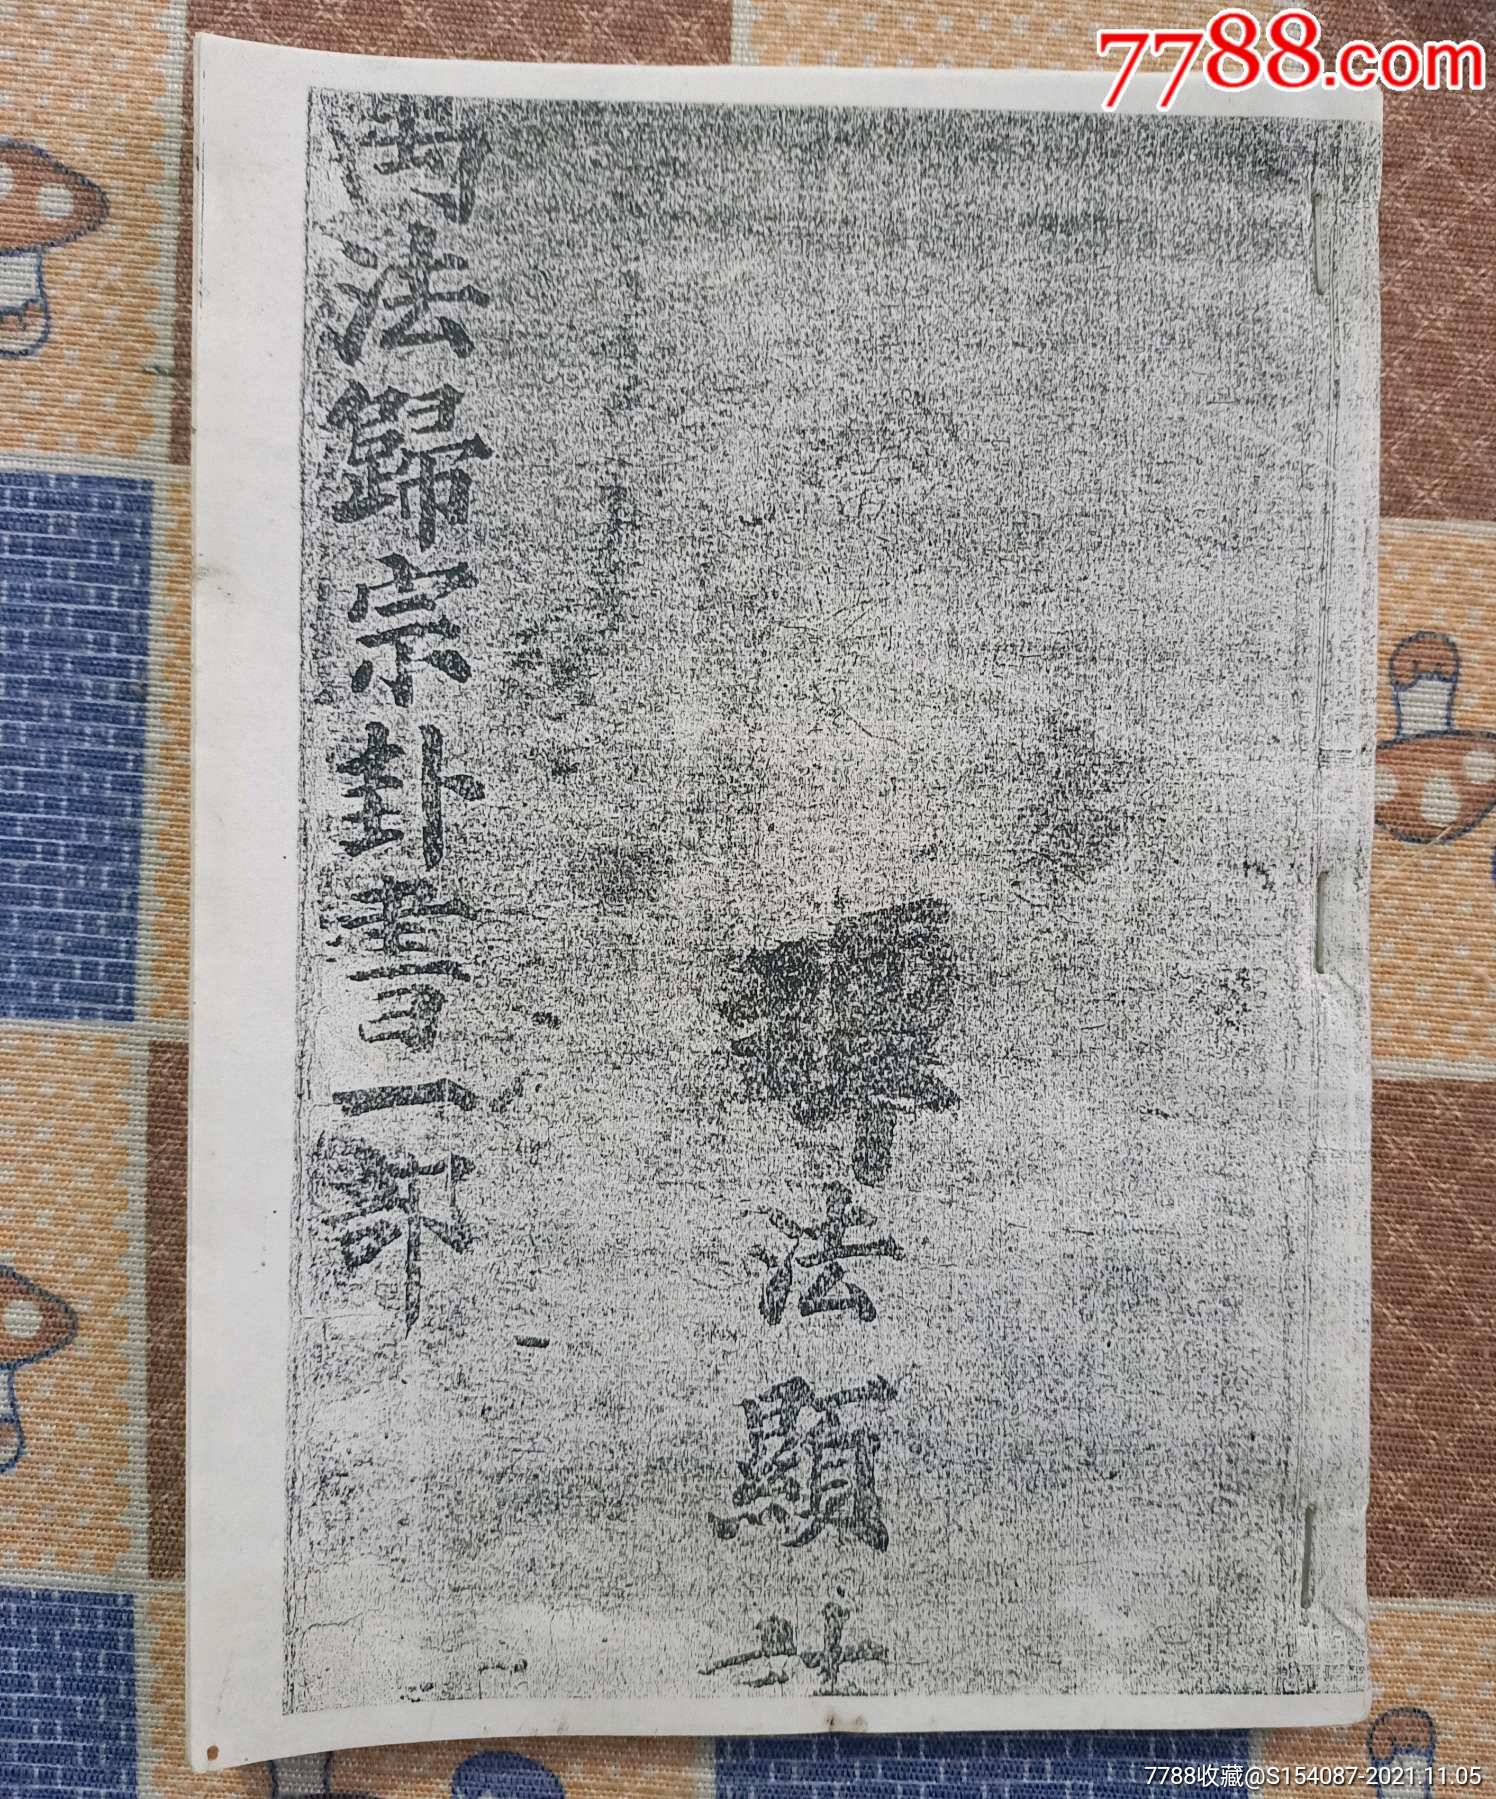 7788.com
法歸宗卦書一部
法顯
7788收藏@S154087-2021.11.05